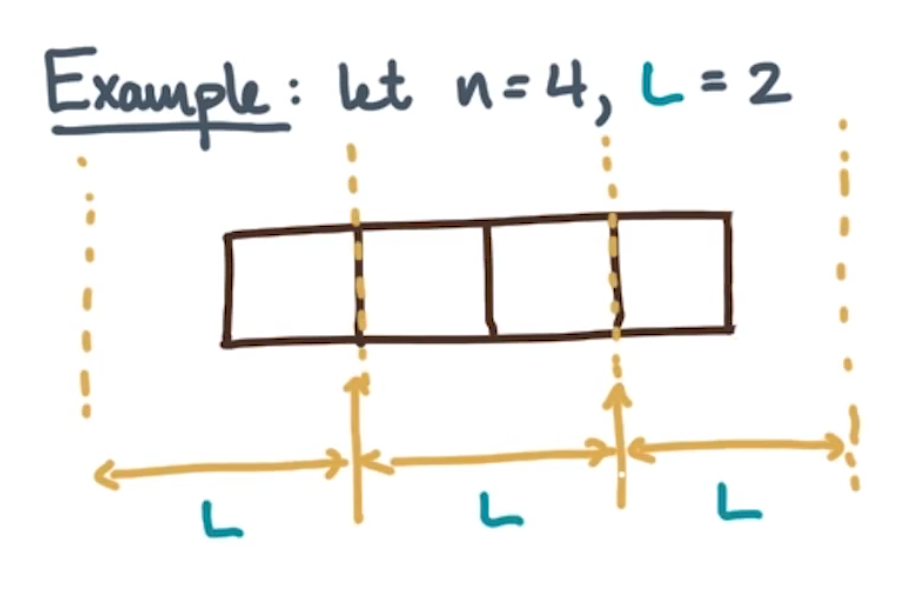 Example: let n=4, L=2
L L L